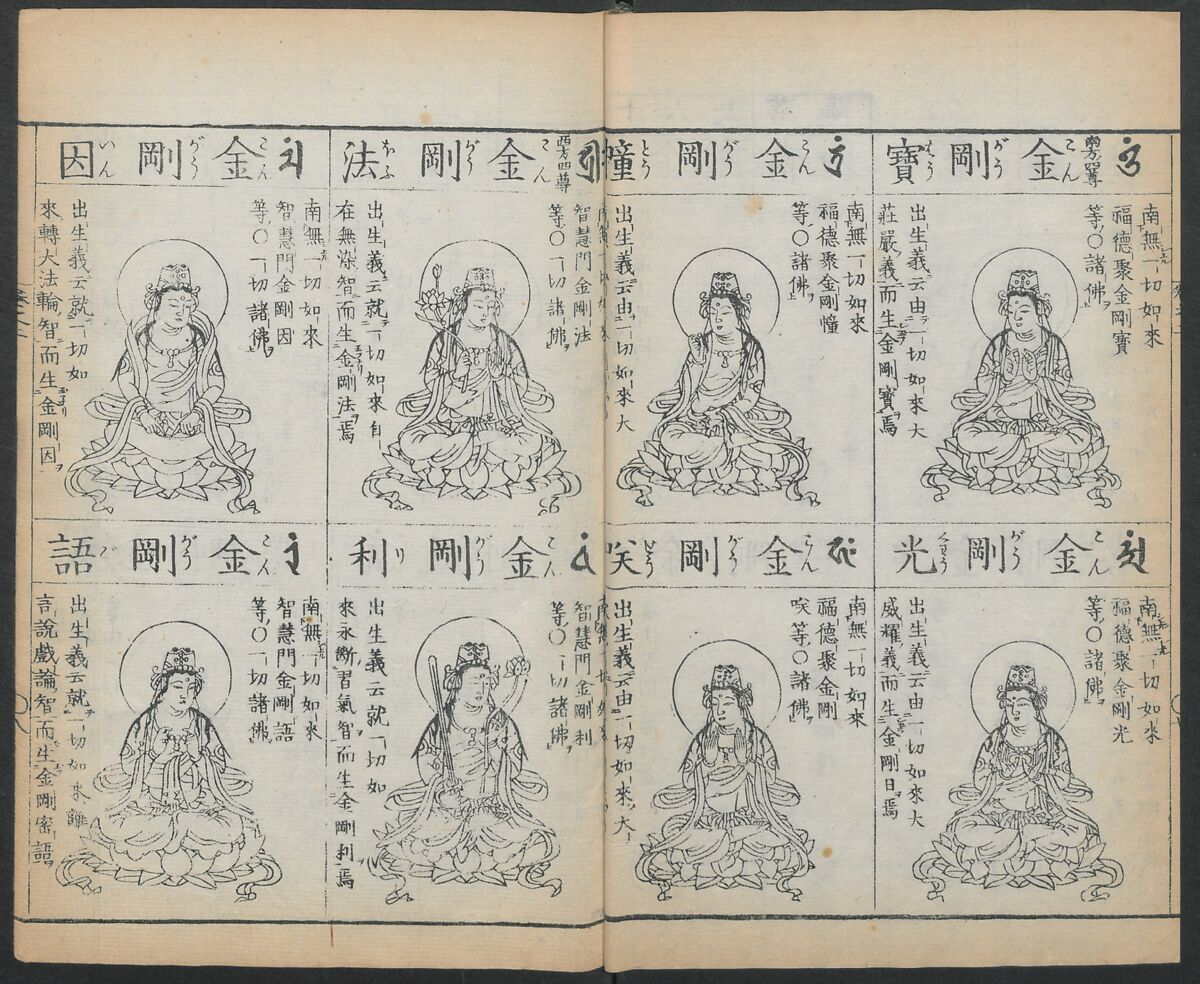 南方四尊
金剛寶
こん がう ほう
南無一切如來
福德聚金剛寶
等〇諸佛
出生義云由一切如來大
莊嚴義而生金剛寶焉
金剛光
こん がう くわう
南無一切如來
福德聚金剛光
等〇諸佛
出生義云由一切如來大
威耀義而生金剛日焉
金剛幢
こん がう とう
南無一切如來
福德聚金剛幢
等〇諸佛
出生義云由一切如來大
金剛咲
こん がう せう
南無一切如來
福德聚金剛
咲等〇諸佛
出生義云由一切如來大
西方四尊
金剛法
こん がう ほふ
智慧門金剛法
等〇一切諸佛
出生義云就一切如來自
在無染智而生金剛法焉
金剛利
こん がう り
智慧門金剛利
等〇一切諸佛
出生義云就一切如
來永斷習氣智而生金剛利焉
金剛因
こん がう いん
南無一切如來
智慧門金剛因
等〇一切諸佛
出生義云就一切如
來轉大法輪智而生金剛因
金剛語
こん がう ご
南無一切如來
智慧門金剛語
等〇一切諸佛
出生義云就一切如來離
言說戲論智而生金剛密語